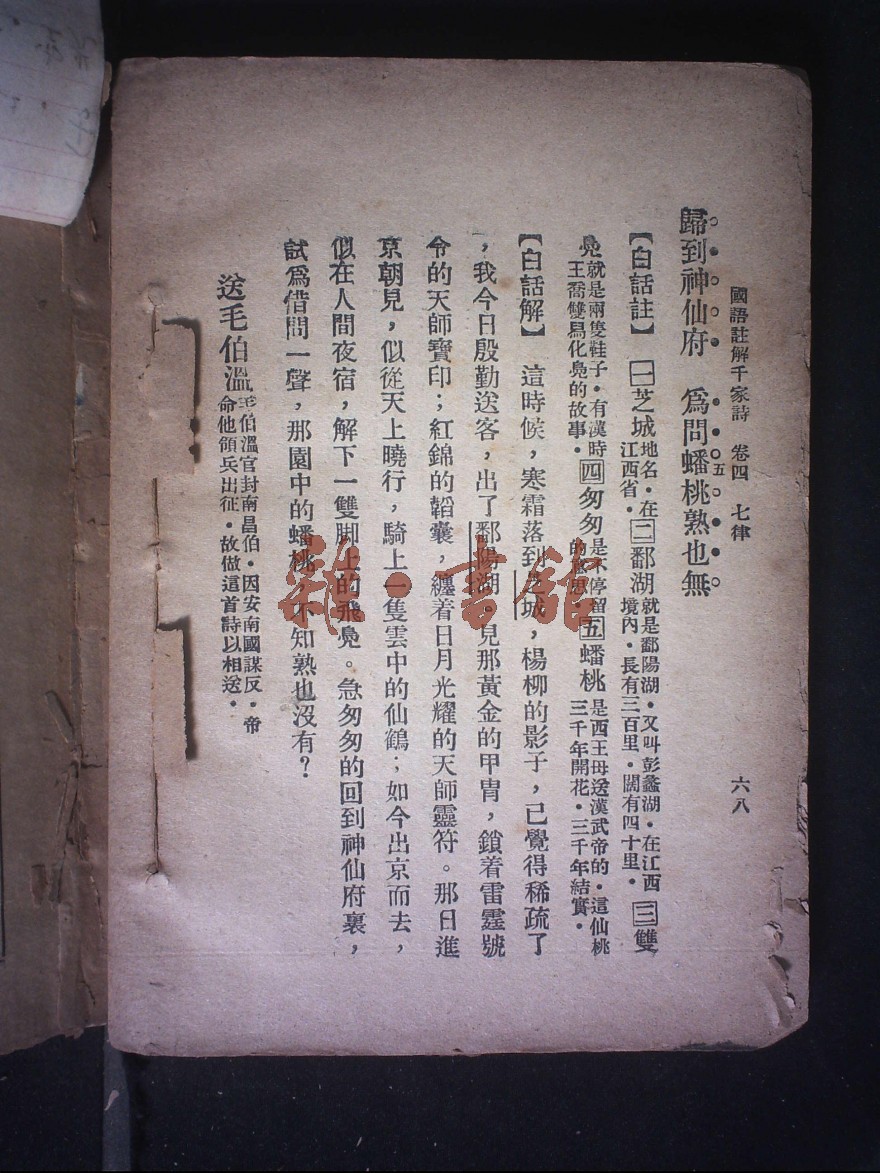 國語註解千家詩 卷四 七律 六八
歸到神仙府 爲問蟠桃熟也無五
【白話註】 一芝城地名·在江西省·二鄱湖就是鄱陽湖·又叫彭蠡湖·在江西境內·長有三百里·闊有四十里·三雙
鳧就是兩隻鞋子·有漢時王喬雙舄化鳧的故事·四匆匆是不停留的意思·五蟠桃是西王母送漢武帝的·這仙桃三千年開花·三千年結實·
【白話解】 這時候，寒霜落到芝城，楊柳的影子，已覺得稀疏了
，我今日殷勤送客，出了鄱陽湖。見那黃金的甲冑，鎖着雷霆號
令的天師寶印；紅錦的韜囊，纏着日月光耀的天師靈符。那日進
京朝見，似從天上曉行，騎上一隻雲中的仙鶴；如今出京而去，
似在人間夜宿，解下一雙脚上的飛鳧。急匆匆的回到神仙府裏，
試爲借問一聲，那園中的蟠桃，不知熟也沒有？
送毛伯溫毛伯溫官封南昌伯·因安南國謀反·帝命他領兵出征·故做這首詩以相送·
雜·書館